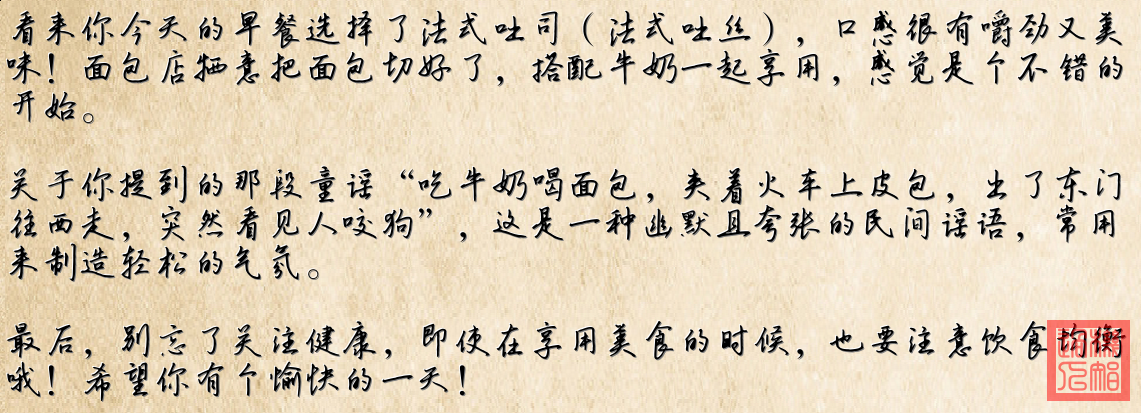 看来你今天的早餐选择了法式吐司（法式吐丝），口感很有嚼劲又美
味！面包店牺意把面包切好了，搭配牛奶一起享用，感觉是个不错的
开始。
关于你提到的那段童谣“吃牛奶喝面包，夹着火车上皮包，出了东门
往西走，突然看见人咬狗”，这是一种幽默且夸张的民间谣语，常用
来制造轻松的气氛。
最后，别忘了关注健康，即使在享用美食的时候，也要注意饮食均衡
哦！希望你有个愉快的一天！